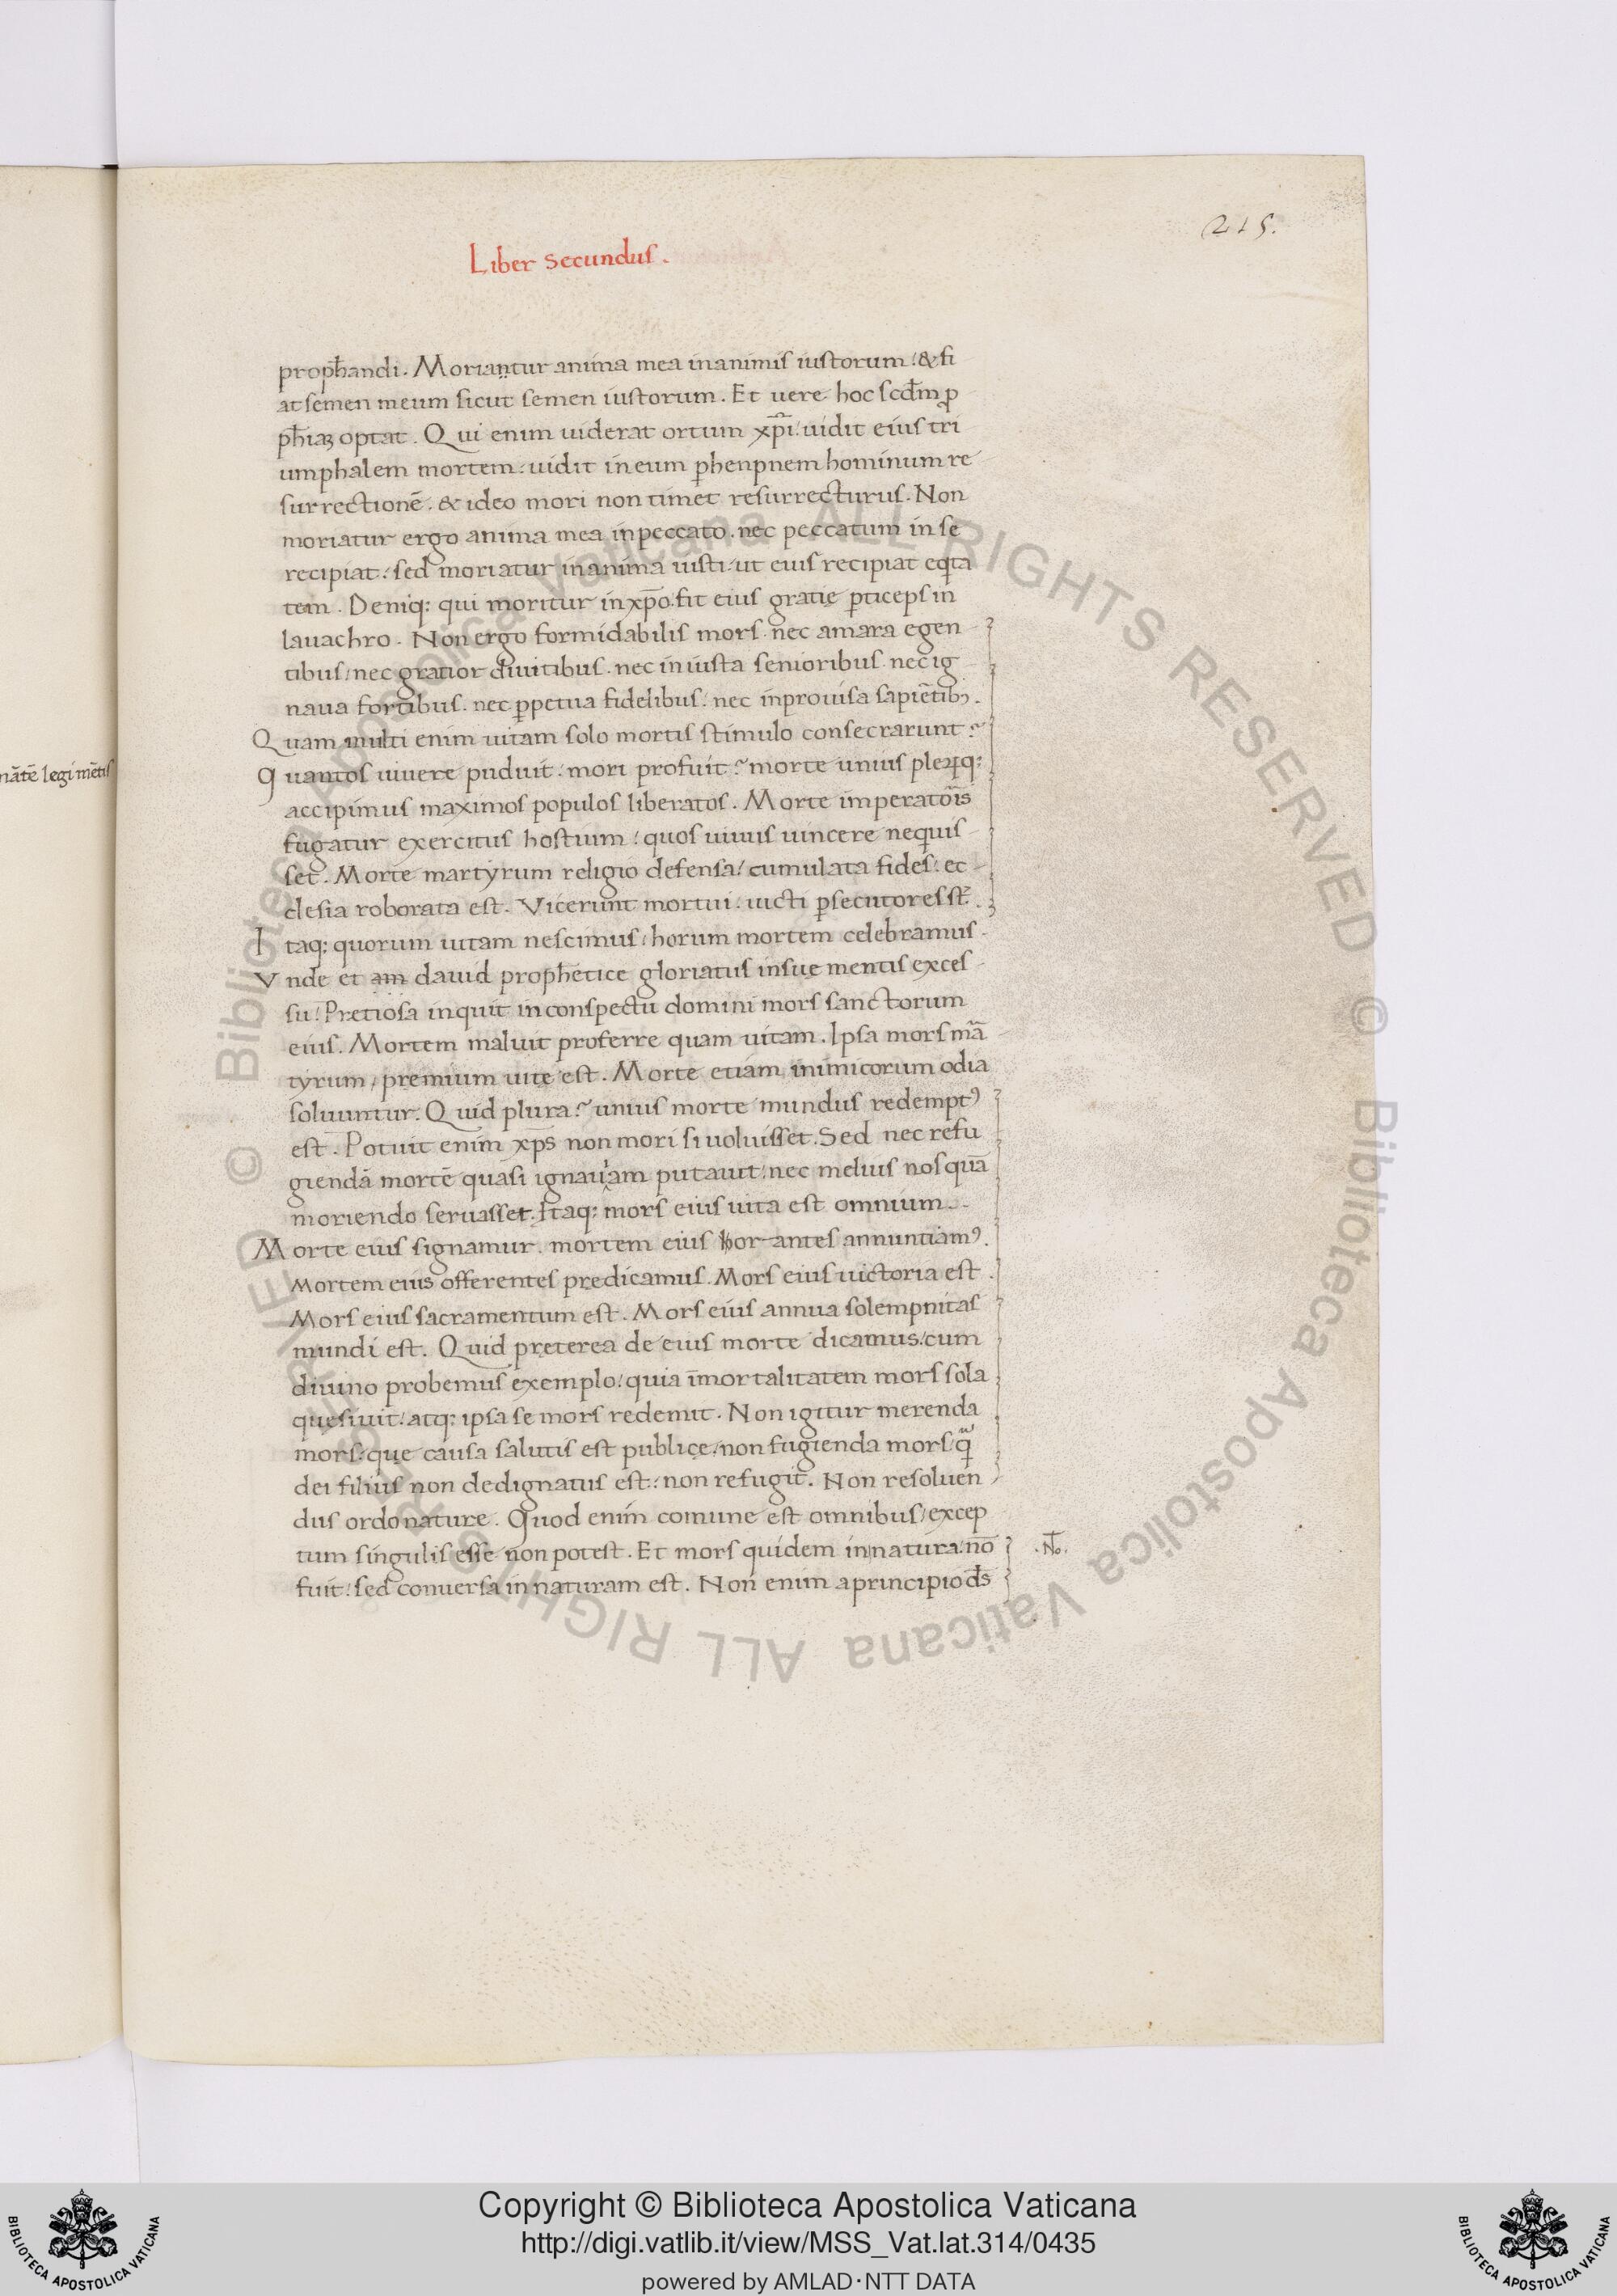 215.
Liber secundus.
proph̅andi. Moriantur anima mea in animis iustorum: & fi
at semen meum sicut semen iustorum. Et uere hoc scd̅m ꝓ
ph̅iaꝫ optat. Qui enim uiderat ortum xp̅i: uidit eius tri
umphalem mortem: uidit in eum perhenpnem hominum re
surrectione̅. & ideo mori non timet resurrecturus. Non
moriatur ergo anima mea in peccato. nec peccatum in se
recipiat: sed moriatur in anima iusti: ut eius recipiat eq̅ta
tem. Deniq: qui moritur in xp̅o. fit eius gratię ꝑticeps in
lauachro. Non ergo formidabilis mors. nec amara egen
tibus: nec gratior diuitibus. nec iniusta senioribus. nec ig
naua fortibus. nec ꝑpetua fidelibus: nec inprouisa sapie̅tibꝫ.
Quam multi enim uitam solo mortis stimulo consecrarunt?
Quantos uiuere puduit: mori profuit? morte unius pleꝝq:
accipimus maximos populos liberatos. Morte imperatoris
fugatur exercitus hostium: quos uiuus uincere nequis
set. Morte martyrum religio defensa: cumulata fides: ec
clesia roborata est. Vicerunt mortui: uicti ꝑsecutores st̅.
Itaq: quorum uitam nescimus: horum mortem celebramus.
Vnde et am dauid prophetice gloriatus in sue mentis exces
su: Pretiosa inquit in conspectu domini mors sanctorum
eius. Mortem maluit proferre quam uitam. Ipsa mors ma̅
tyrum, premium uitę est. Morte etiam inimicorum odia
soluuntur. Quid plura? unius morte mundus redemptꝰ
est. Potuit enim xp̅s non mori si uoluisset. Sed nec refu
gienda̅ morte̅ quasi ignauiam putauit: nec melius nos qua̅
moriendo seruasset. Itaq: mors eius uita est omnium.
Morte eius signamur. mortem eius hor antes annuntiamꝰ.
Mortem eius offerentes predicamus. Mors eius uictoria est.
Mors eius sacramentum est. Mors eius annua solempnitas
mundi est. Quid pręterea de eius morte dicamus: cum
diuino probemus exemplo: quia i̅mortalitatem mors sola
quesiuit: atq: ipsa se mors redemit. Non igitur merenda
mors: que causa salutis est publicę: non fugienda mors: q̅
dei filius non dedignatus est: non refugit. Non resoluen
dus ordo nature. Quod enim comune est omnibus: excep
tum singulis esse non potest. Et mors quidem in natura: no̅
fuit: sed conuersa in naturam est. Non enim a principio d̅s
.No̅.
na̅te̅ legi me̅tis
Copyright © Biblioteca Apostolica Vaticana
http://digi.vatlib.it/view/MSS_Vat.lat.314/0435
powered by AMLAD·NTT DATA
BIBLIOTECA APOSTOLICA VATICANA
BIBLIOTECA APOSTOLICA VATICANA
© Biblioteca Apostolica Vaticana ALL RIGHTS RESERVED © Biblioteca Apostolica Vaticana ALL RIGHTS RESERVED